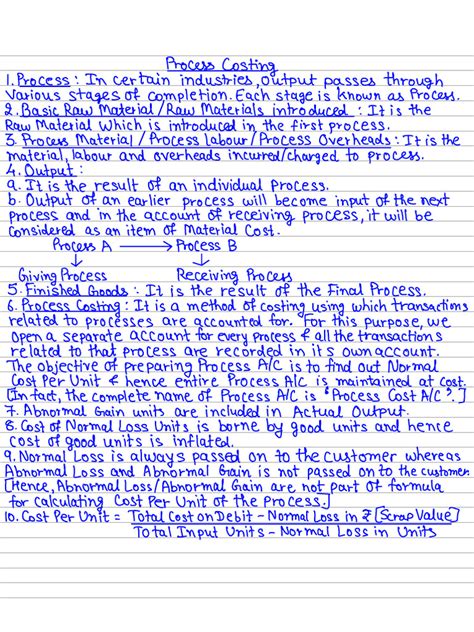 Process Costing
1. Process : In certain industries, output passes through
various stages of completion. Each stage is known as Process.
2. Basic Raw Material/Raw Materials introduced : It is the
Raw Material which is introduced in the first process.
3. Process Material / Process Labour/Process Overheads : It is the
material, labour and overheads incurred/charged to process.
4. Output :
a. It is the result of an individual Process.
b. Output of an earlier process will become input of the next
process and in the account of receiving process, it will be
considered as an item of Material Cost.
Process A ⟶ Process B
↓ ↓
Giving Process Receiving Process
5. Finished Goods : It is the result of the Final Process.
6. Process Costing : It is a method of costing using which transactions
related to processes are accounted for. For this purpose, we
open a separate account for every process & all the transactions
related to that process are recorded in its own account.
The objective of preparing Process A/c is to find out Normal
Cost Per Unit & hence entire Process A/c is maintained at cost.
[In fact, the complete name of Process A/c is 'Process Cost A/c'.]
7. Abnormal Gain units are included in Actual Output.
8. Cost of Normal Loss Units is borne by good units and hence
cost of good units is inflated.
9. Normal Loss is always passed on to the customer whereas
Abnormal Loss and Abnormal Gain is not passed on to the customer.
[Hence, Abnormal Loss/Abnormal Gain are not part of formula
for calculating Cost Per Unit of the Process.]
10. Cost Per Unit = Total Cost on Debit - Normal Loss in ₹ [Scrap Value]
Total Input Units - Normal Loss in Units